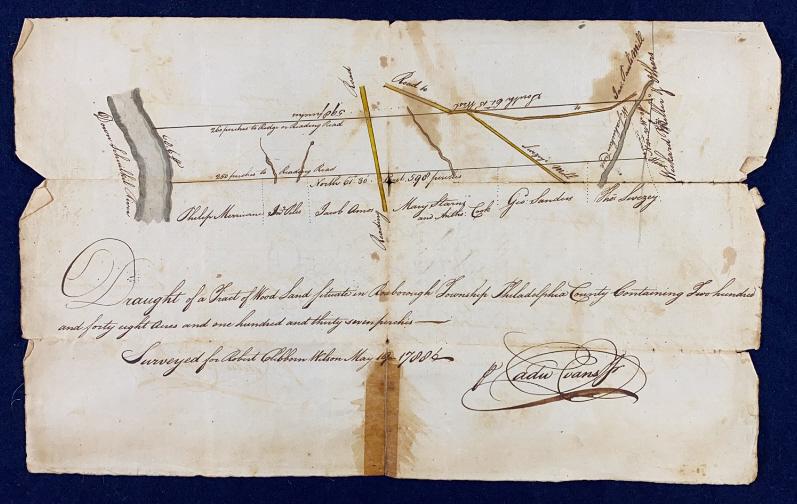 Road
Road to
South 61° 15' West
590 perches
260 perches to Ridge or Reading Road
250 perches to Reading Road
North 61° 30' East 598 perches
Reading
Mill
River Schuylkill
Philip Merriman
Jno Piles
Jacob Amos
Mary Starnz
and Anthy Cook
Geo: Sanders
Thos Livezey
Draught of a Tract of Wood Land situate in Roxborough Township Philadelphia County Containing Two hundred
and forty eight Acres and one hundred and thirty seven perches
Surveyed for Robert Clibborn Wilson May 19th 1788 &c
pr Cadwr Evans Jr